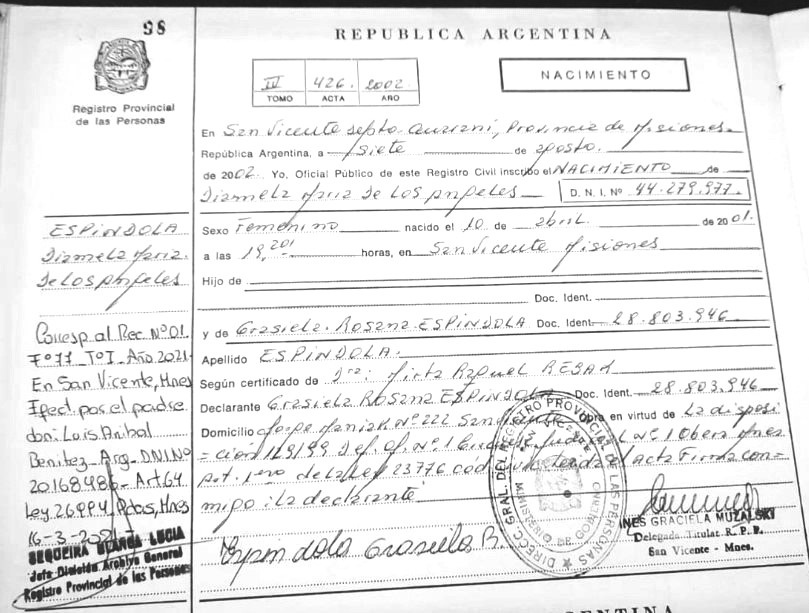 98
REPUBLICA ARGENTINA
Registro Provincial
de las Personas
IV 426. 2002
TOMO ACTA AÑO
NACIMIENTO
En San Vicente Depto. Guaraní, Provincia de Misiones
República Argentina, a Siete de agosto.
de 2002. Yo, Oficial Público de este Registro Civil inscribo el NACIMIENTO de
Diamela Maria De Los Angeles D. N. I. Nº 44.279.977.
Sexo Femenino nacido el 10 de abril de 2001.
a las 19,20 horas, en San Vicente Misiones
Hijo de
Doc. Ident.
y de Grasiela Rosana ESPINDOLA Doc. Ident. 28.803.946
Apellido ESPINDOLA.
Según certificado de Dra: Mirta Raquel
Declarante Grasiela Rosana ESPINDOLA Doc. Ident. 28.803.946
Domicilio Nº 222 San Vicente Obra en virtud de La disposi
=cion 129/99 Nº 1 Nº 1 Obera Mnes
art. 1ero de la Ley 23776 Acta Firma con=
migo la declarante
Espindola Grasiela R.
DIRECC. GRAL. DEL REGISTRO PROVINCIAL DE LAS PERSONAS
INES GRACIELA MUZALSKI
Delegada Titular R. P. P.
San Vicente - Mnes.
ESPINDOLA
Diamela Maria
De Los Angeles
Corresp. al Rec. Nº 01.
Fº 11 Tº I Año 2021
En San Vicente, Mnes
Efect. por el padre
don: Luis Anibal
Benitez Arg. DNI.Nº
20.168.486 - Art 64
Ley 26.994 Pdas, Mnes
16-3-2021
SEQUEIRA BLANCA LUCIA
Jefa División Archivo General
Registro Provincial de las Personas